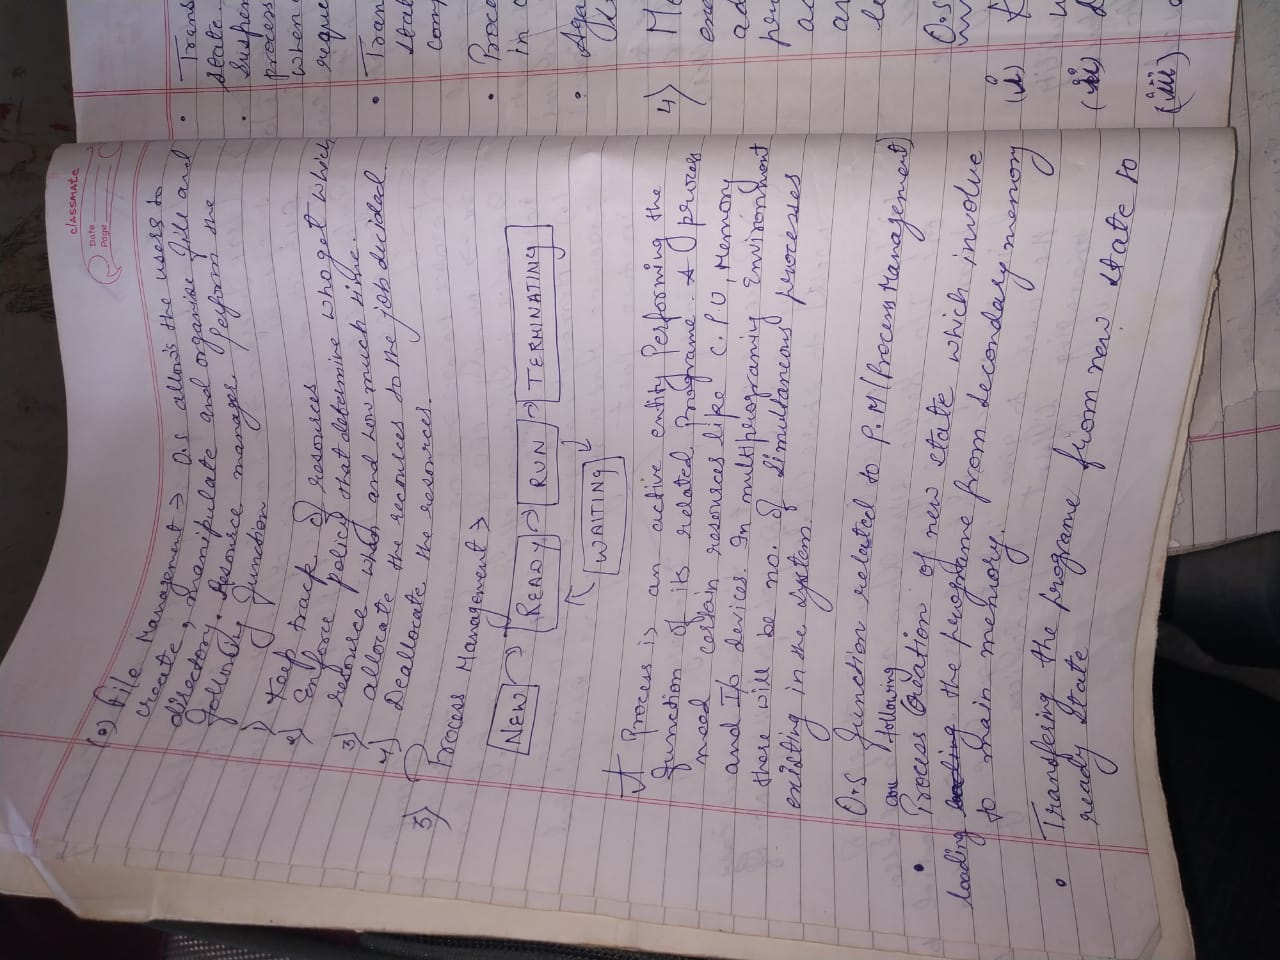 classmate
Date
Page
(e) File Management → O.S allow's the users to
create, manipulate and organise file and
directory. Resource manager. Perform the
following function
1) Keep track of resources
2) Enforce policy that determine who get which
resource when and how much time.
3) allocate the recources to the job decided.
4) Deallocate the resources.
3) Process Management →
NEW READY RUN TERMINATING
WAITING
A Process is an active entity Performing the
function of its related Programe. A process
need certain resources like C.P.U, Memory
and I/o devices. In multiprograming Environment
there will be no. of Simultaneous processes
existing in the System.
O.S function related to P.M (Process Management)
are following
• Process Creation of new state which involve
loading the programe from Secondary memory
to main memory.
• Transfering the programe from new state to
ready state
• Trans
state.
• Suspen
process
when
reque
• Tran
stat
comp
• Proce
in
• Aga
4) M
ene
ad
per
ac
an
le
O.S
(i)
(ii)
(iii)